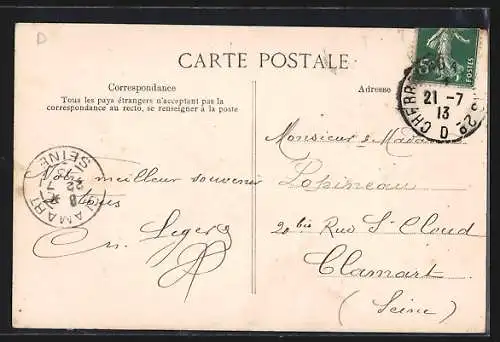 D
CARTE POSTALE
Correspondance
Tous les pays étrangers n'acceptant pas la
correspondance au recto, se renseigner à la poste
CLAMART
8
22 7
13
SEINE
Notre meilleur souvenir
à tous
m. Legers
Adresse
POSTES
21 - 7
13
Monsieur & Madame
Lopineau
20 bis Rue St Cloud
Clamart
(Seine)